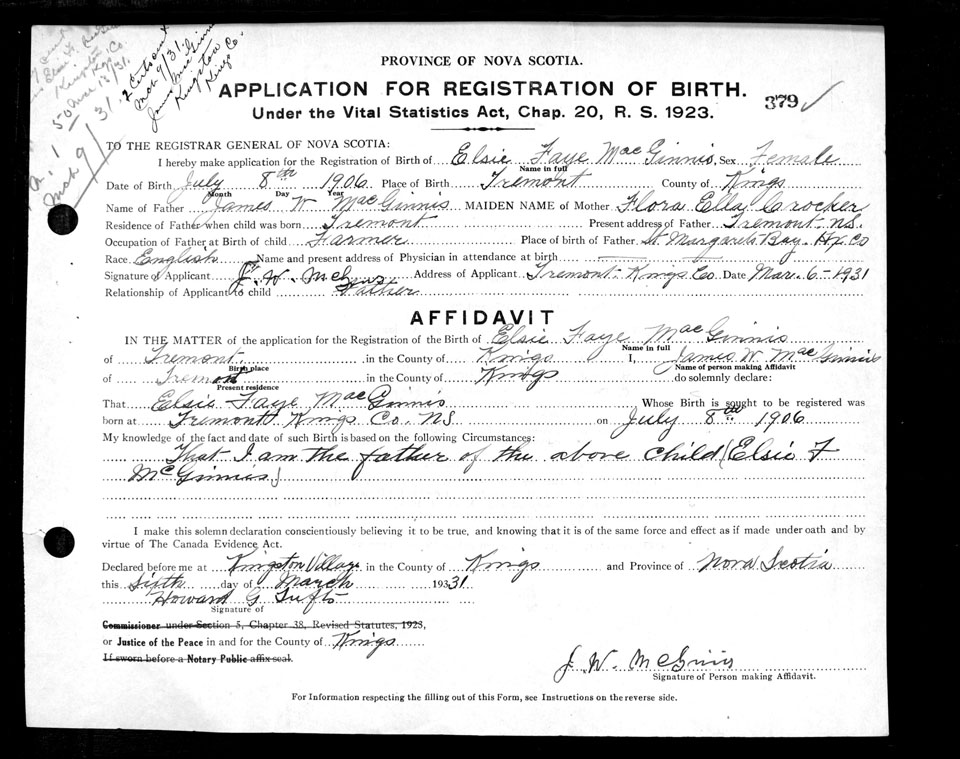 PROVINCE OF NOVA SCOTIA.
APPLICATION FOR REGISTRATION OF BIRTH.
379
Under the Vital Statistics Act, Chap. 20, R. S. 1923.
2 Extracts
Mch 9/31.
Kingston
Kings Co.
Mch 9/31
TO THE REGISTRAR GENERAL OF NOVA SCOTIA:
I hereby make application for the Registration of Birth of Elsie Faye MacGinnis Sex Female
Name in full
Date of Birth July 8th 1906 Place of Birth Tremont County of Kings
Month Day Year
Name of Father James W MacGinnis MAIDEN NAME of Mother Flora Ella Crocker
Residence of Father when child was born Tremont Present address of Father Tremont N.S.
Occupation of Father at Birth of child Farmer Place of birth of Father St Margarets Bay. Hx Co
Race English Name and present address of Physician in attendance at birth
Signature of Applicant J. W. McGinnis Address of Applicant Tremont Kings Co Date Mar. 6 - 1931
Relationship of Applicant to child Father
AFFIDAVIT
IN THE MATTER of the application for the Registration of the Birth of Elsie Faye MacGinnis
Name in full
of Tremont in the County of Kings I, James W. MacGinnis
Birth place Name of person making Affidavit
of Tremont in the County of Kings do solemnly declare:
Present residence
That Elsie Faye MacGinnis Whose Birth is sought to be registered was
born at Tremont Kings Co. N.S on July 8th 1906
My knowledge of the fact and date of such Birth is based on the following Circumstances:
That I am the father of the above child (Elsie F
McGinnis)
I make this solemn declaration conscientiously believing it to be true, and knowing that it is of the same force and effect as if made under oath and by
virtue of The Canada Evidence Act.
Declared before me at Kingston Village in the County of Kings and Province of Nova Scotia
this Sixth day of March 19331
Howard G Tufts
Signature of
Commissioner under Section 5, Chapter 38, Revised Statutes, 1923,
or Justice of the Peace in and for the County of Kings
If sworn before a Notary Public affix seal.
J. W. McGinis
Signature of Person making Affidavit.
For Information respecting the filling out of this Form, see Instructions on the reverse side.